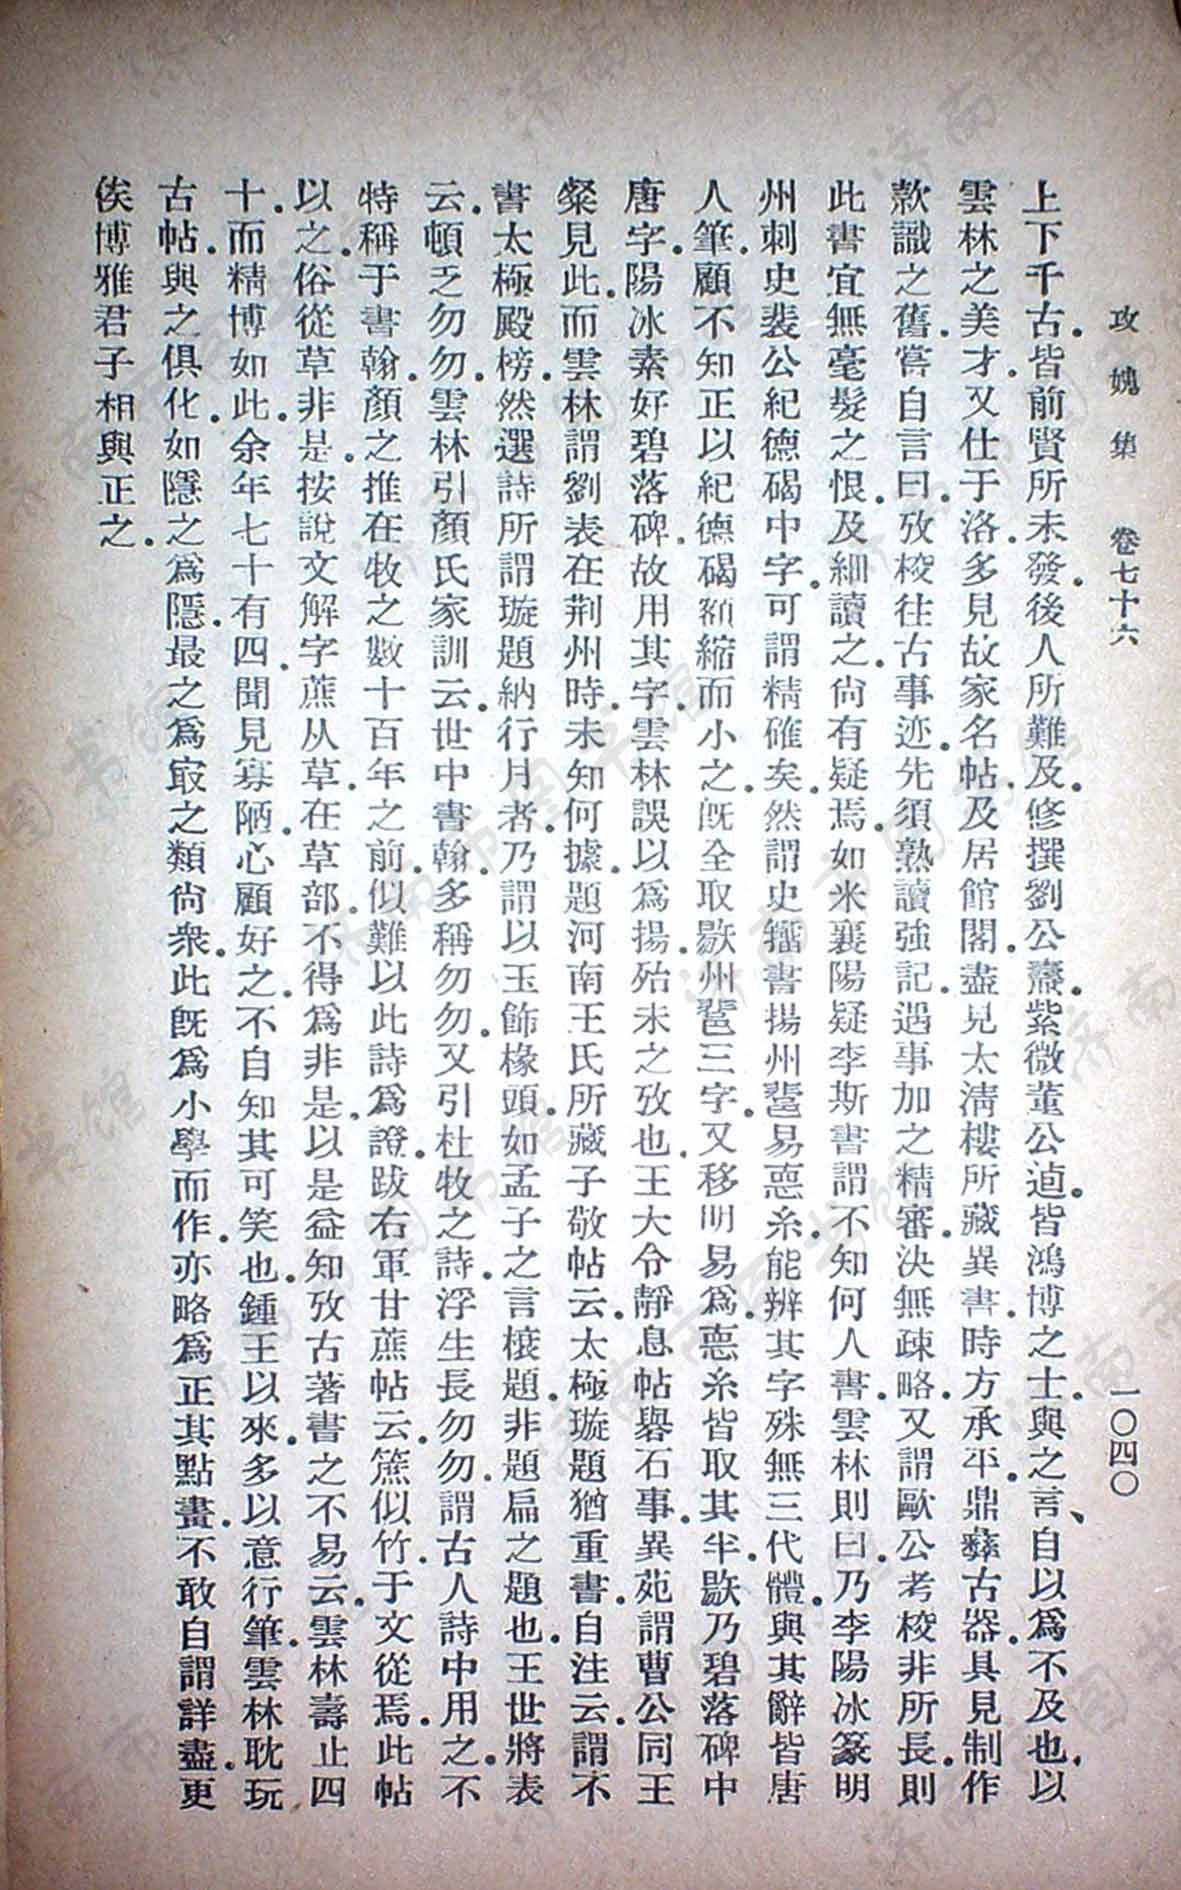 攻媿集　卷七十六　一〇四〇
上下千古。皆前賢所未發。後人所難及。修撰劉公燾。紫微董公逌。皆鴻博之士。與之言、自以爲不及也。以
雲林之美才。又仕于洛。多見故家名帖。及居館閣。盡見太淸樓所藏異書。時方承平。鼎彝古器。具見制作
款識之舊。嘗自言曰。攷校往古事迹。先須熟讀強記。遇事加之精審。決無疎略。又謂歐公考校非所長。則
此書宜無毫髮之恨。及細讀之。尙有疑焉。如米襄陽疑李斯書。謂不知何人書。雲林則曰。乃李陽冰篆明
州刺史裴公紀德碣中字。可謂精確矣。然謂史籀書揚州䔣易惡糸。能辨其字。殊無三代體。與其辭皆唐
人筆。顧不知正以紀德碣額縮而小之。旣全取歇州三字。又移明易爲惡糸。皆取其半。歇乃碧落碑中
唐字。陽冰素好碧落碑。故用其字。雲林誤以爲揚。殆未之攷也。王大令靜息帖礜石事。異苑謂曹公同王
粲見此。而雲林謂劉表在荆州時。未知何據。題河南王氏所藏子敬帖云。太極璇題。猶重書。自注云。謂不
書太極殿榜。然選詩所謂璇題納行月者。乃謂以玉飾椽頭。如孟子之言榱題。非題扁之題也。王世將表
云。頓乏勿勿。雲林引顏氏家訓云。世中書翰。多稱勿勿。又引杜牧之詩。浮生長勿勿。謂古人詩中用之。不
特稱于書翰。顏之推在牧之數十百年之前。似難以此詩爲證。跋右軍甘蔗帖云。䉡似竹。于文從焉。此帖
以之。俗從草非是。按說文解字蔗从草。在草部。不得爲非是。以是益知攷古著書之不易云。雲林壽止四
十。而精博如此。余年七十有四。聞見寡陋。心顧好之。不自知其可笑也。鍾王以來。多以意行筆。雲林耽玩
古帖。與之俱化。如隱之爲隱。最之爲冣之類尙衆。此旣爲小學而作。亦略爲正其點畫。不敢自謂詳盡。更
俟博雅君子相與正之。